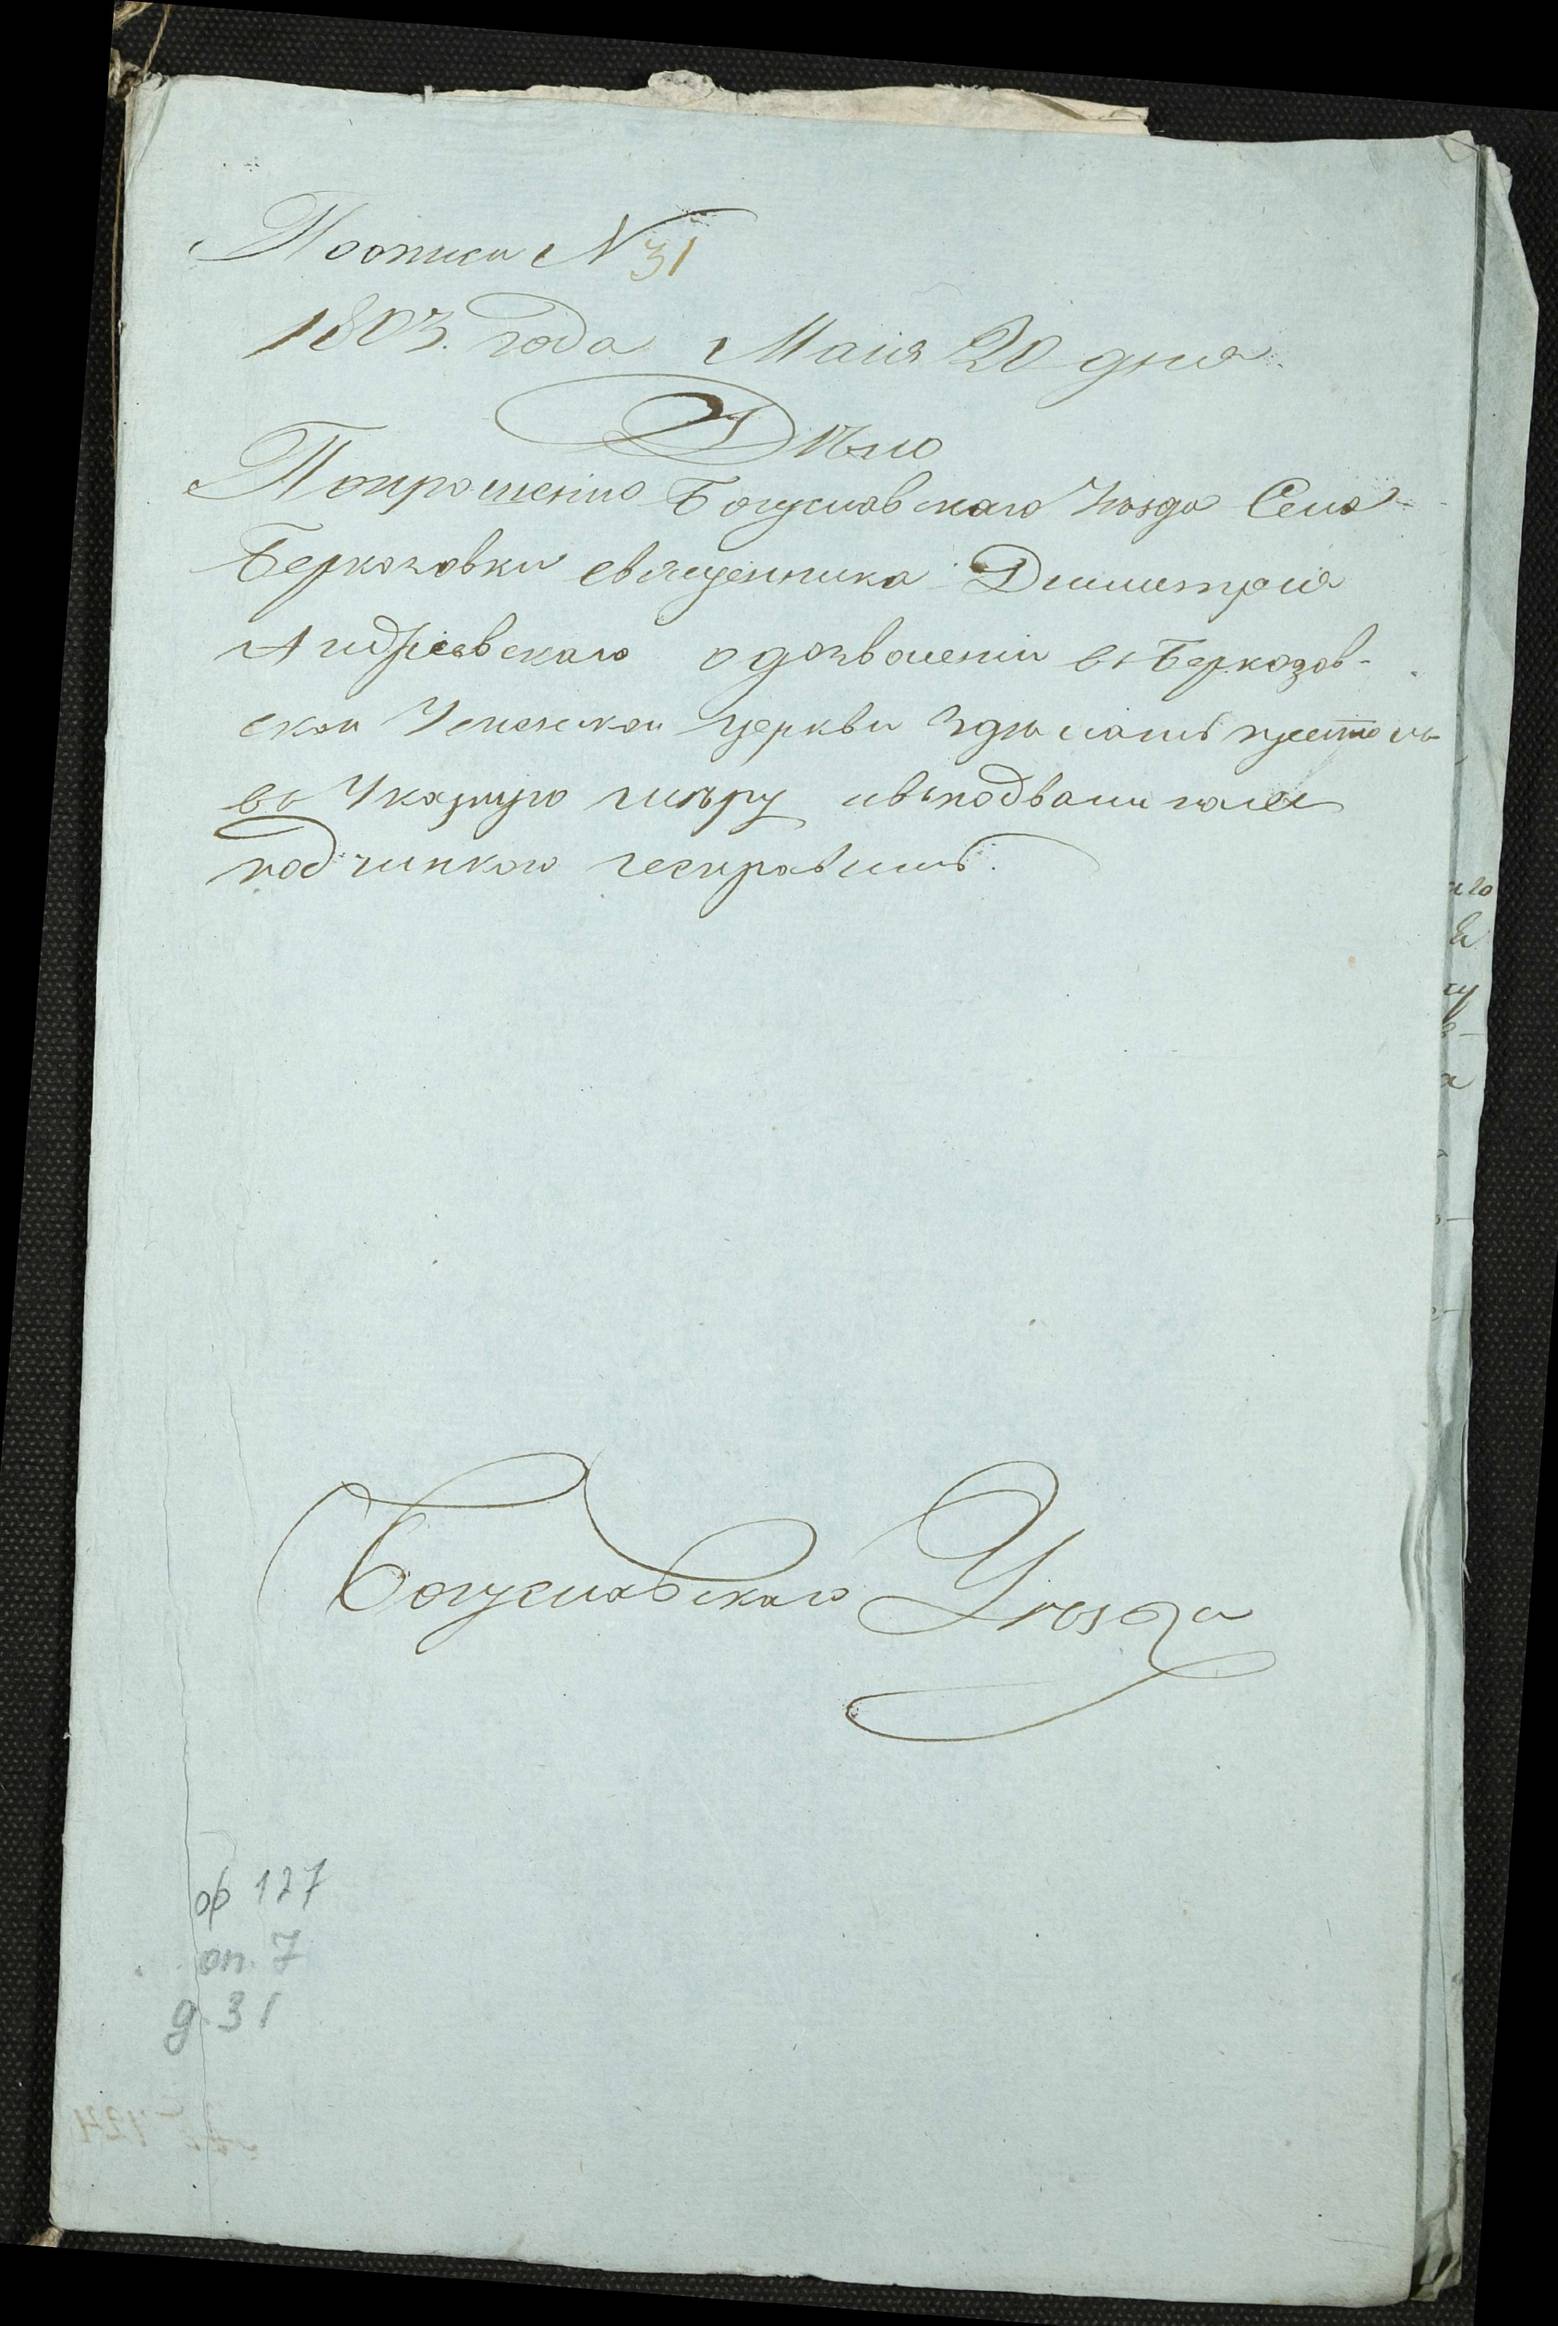 По описи N 31
1803. года Маія 20 дня.
Дѣло
Попрошенію Богуславскаго Уѣзда Села
Беркозовки священника Димитрія
Андріевскаго одозволеніи въ Беркозов-
ской Успенской церкви здѣлать престолъ
въ Указную мѣру
подчинкою исправить.
Богуславскаго Уѣзда
ф 127
оп. 7
д. 31